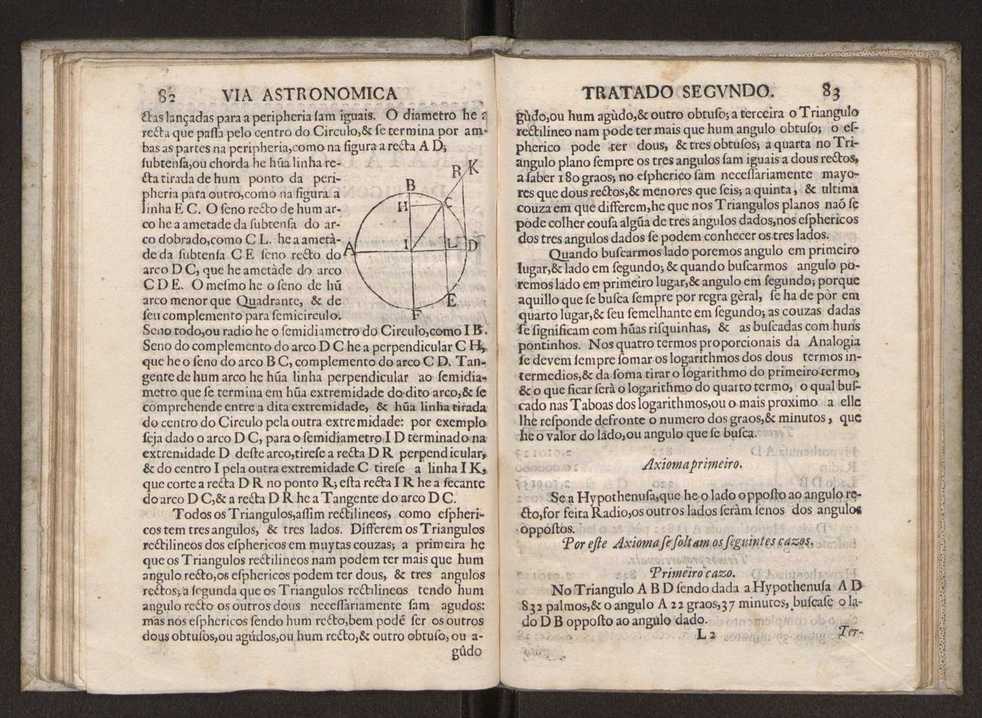 82 VIA ASTRONOMICA
ctas lançadas para a peripheria sam iguais. O diametro he a
recta que passa pelo centro do Circulo,& se termina por am-
bas as partes na peripheria,como na figura a recta A D;
subtensa,ou chorda he hũa linha re-
cta tirada de hum ponto da peri-
pheria para outro,como na figura a
linha E C. O seno recto de hum ar-
co he a ametade da subtensa do ar-
co dobrado,como C L. he a ametà-
de da subtensa C E seno recto do
arco D C, que he ametàde do arco
C D E. O mesmo he o seno de hũ
arco menor que Quadrante, & de
seu complemento para semicirculo.
Seno todo,ou radio he o semidiametro do Circulo,como I B.
Seno do complemento do arco D C he a perpendicular C H,
que he o seno do arco B C, complemento do arco C D. Tan-
gente de hum arco he hũa linha perpendicular ao semidia-
metro que se termina em hũa extremidade do dito arco,& se
comprehende entre a dita extremidade, & hũa linha tirada
do centro do Circulo pela outra extremidade: por exemplo
seja dado o arco D C, para o semidiametro I D terminado na
extremidade D deste arco,tirese a recta D R perpendicular,
& do centro I pela outra extremidade C tirese a linha I K,
que corte a recta D R no ponto R; esta recta I R he a secante
do arco D C,& a recta D R he a Tangente do arco D C.
Todos os Triangulos,assim rectilineos, como espheri-
cos tem tres angulos, & tres lados. Differem os Triangulos
rectilineos dos esphericos em muytas couzas; a primeira he
que os Triangulos rectilineos nam podem ter mais que hum
angulo recto,os esphericos podem ter dous, & tres angulos
rectos; a segunda que os Triangulos rectilineos tendo hum
angulo recto os outros dous necessariamente sam agudos:
mas nos esphericos sendo hum recto,bem podẽ ser os outros
dous obtusos,ou agúdos,ou hum recto,& outro obtuso, ou a-
gûdo
B
R K
H
C
A
I
L
D
E
F
TRATADO SEGVNDO. 83
gùdo,ou hum agùdo,& outro obtuso; a terceira o Triangulo
rectilineo nam pode ter mais que hum angulo obtuso; o es-
pherico pode ter dous, & tres obtusos; a quarta no Tri-
angulo plano sempre os tres angulos sam iguais a dous rectos,
a saber 180 graos; no espherico sam necessariamente mayo-
res que dous rectos,& menores que seis; a quinta, & ultima
couza em que differem,he que nos Triangulos planos naõ se
pode colher cousa algũa de tres angulos dados,nos esphericos
dos tres angulos dados se podem conhecer os tres lados.
Quando buscarmos lado poremos angulo em primeiro
lugar,& lado em segundo; & quando buscarmos angulo po-
remos lado em primeiro lugar,& angulo em segundo; porque
aquillo que se busca sempre por regra gèral, se ha de pòr em
quarto lugar,& seu semelhante em segundo; as couzas dadas
se significam com hũas risquinhas, & as buscadas com huns
pontinhos. Nos quatro termos proporcionais da Analogia
se devem sempre somar os logarithmos dos dous termos in-
termedios,& da soma tirar o logarithmo do primeiro termo,
& o que ficar serà o logarithmo do quarto termo, o qual bus-
cado nas Taboas dos logarithmos,ou o mais proximo a elle
lhe responde defronte o numero dos graos,& minutos, que
he o valor do lado,ou angulo que se busca.
Axioma primeiro.
Se a Hypothenusa,que he o lado opposto ao angulo re-
cto,for feita Radio,os outros lados seràm senos dos angulos
oppostos.
Por este Axioma se soltam os seguintes cazos.
Primeiro cazo.
No Triangulo A B D sendo dada a Hypothenusa A D
832 palmos,& o angulo A 22 graos,37 minutos, buscase o la-
do D B opposto ao angulo dado.
L 2 Ter-